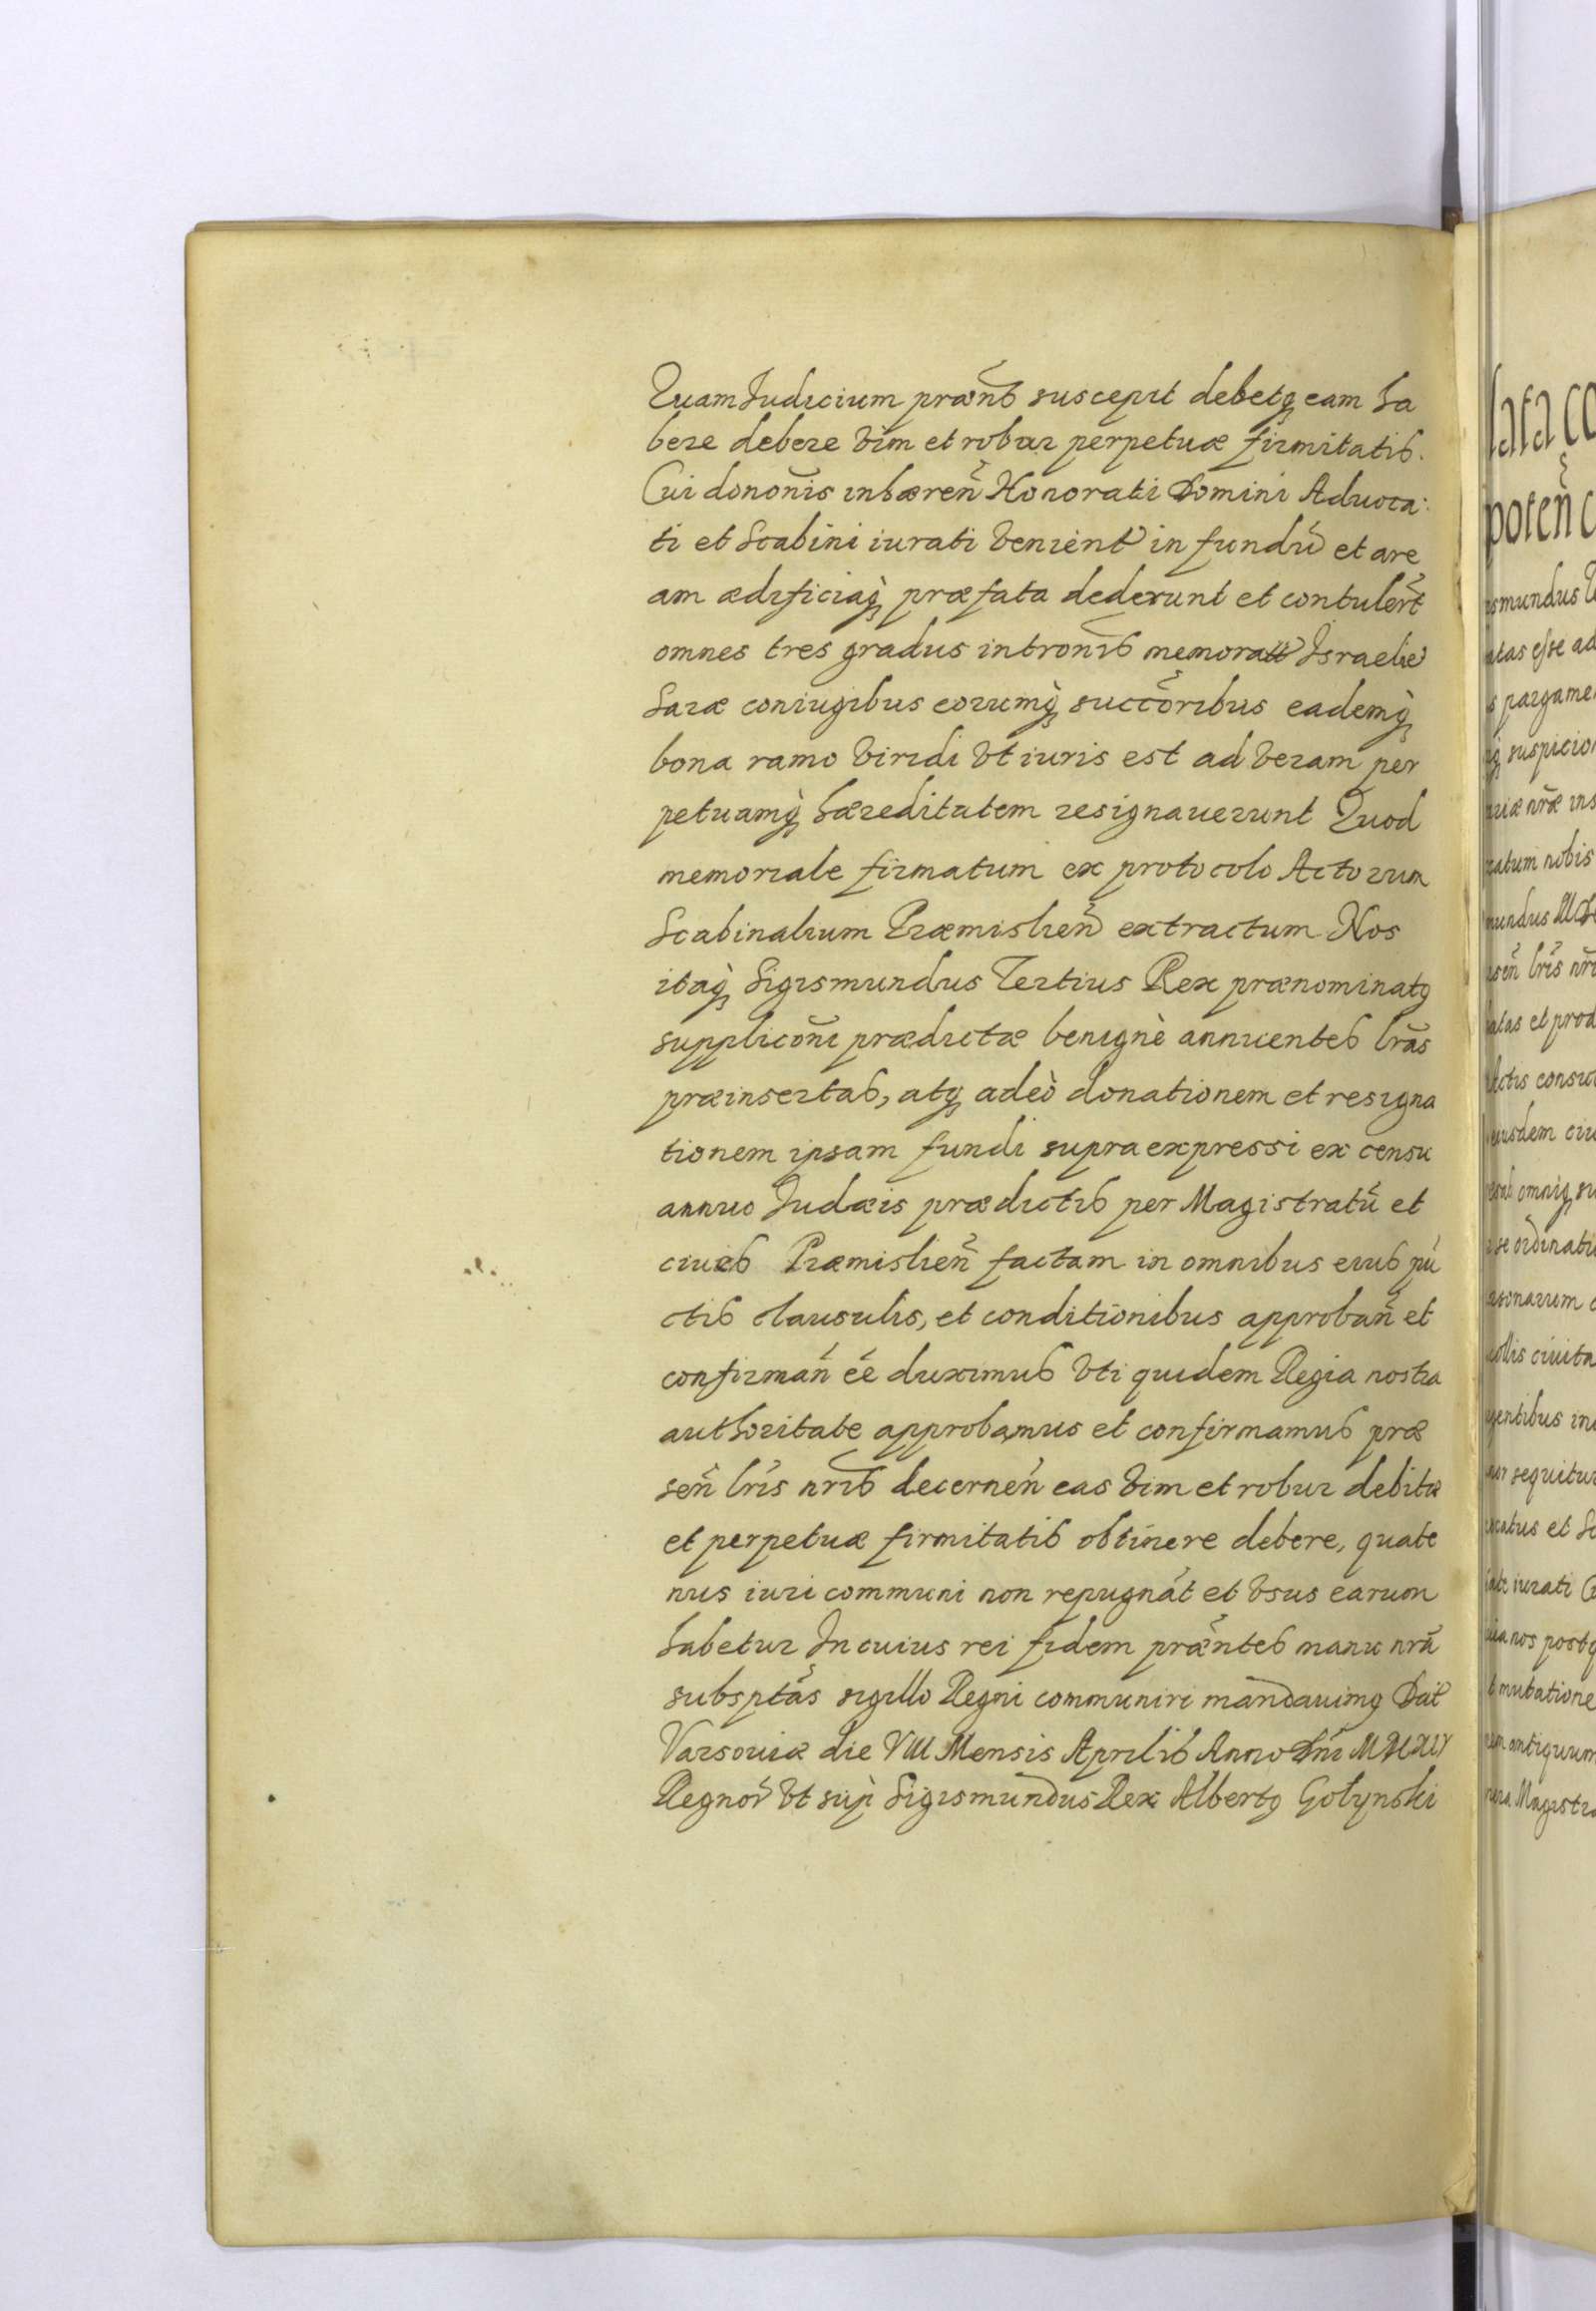 Quam Judicium præn̄s suscepit debetq̨ eam ha
bere debere vim et robur perpetuæ firmitatis.
Cui donon̄is inhæren̄ Honorati Domini Aduoca:
ti et Scabini iurati venient in fundū et are
am ædificiaq̨ præfata dederunt et contuler̄t
omnes tres gradus intron̄is memorat Israeli
Saræ coniugibus eorumq̨ succ̄oribus eademq̨
bona ramo viridi vt iuris est ad veram per
petuamq̨ hæreditatem resignauerunt Quod
memoriale firmatum ex protocolo Actorum
Scabinalium Præmislien̄ extractum Nos
itaq̨ Sigismundus Tertius Rex prænominatꝯ
supplicōni prædictæ benignè annuentes lrās
præinsertas, atq̨ adeò donationem et resigna
tionem ipsam fundi supra expressi ex censu
annuo Judæis prædictis per Magistratū et
ciues Præmislien̄ factam in omnibus eius pū
ctis clausulis, et conditionibus approban̄ et
confirman̄ eē duximus vti quidem Regia nostra
authoritate approbamus et confirmamus præ
sen̄ lrīs nrīs decernen̄ eas vim et robur debitæ
et perpetuæ firmitatis obtinere debere, quate
nus iuri communi non repugnāt et vsus earum
habetur In cuius rei fidem præn̄tes manu nrā
subsptās sigillo Regni communiri mandauimꝯ Dat
Varsouiæ die VIII Mensis Aprilis Anno Dn̄i
Regnor̄ vt sup̄ Sigismundus Rex Albertꝯ Gołynski
lata co
poten̄ c
ismundus Te
atas esse ad
s pargame
q̨ suspicio
riæ nr̄æ ins
catum nobis
mundus
sen̄ lrīs nr̄
atas et prod
ctis consu
eiusdem ciu
omniq̨ su
se ordinati
rsonarum c
ollis ciuita
gentibus in
or sequitur
catus et Sc
iurati
nos postq
mutatione
antiquum
Magistra